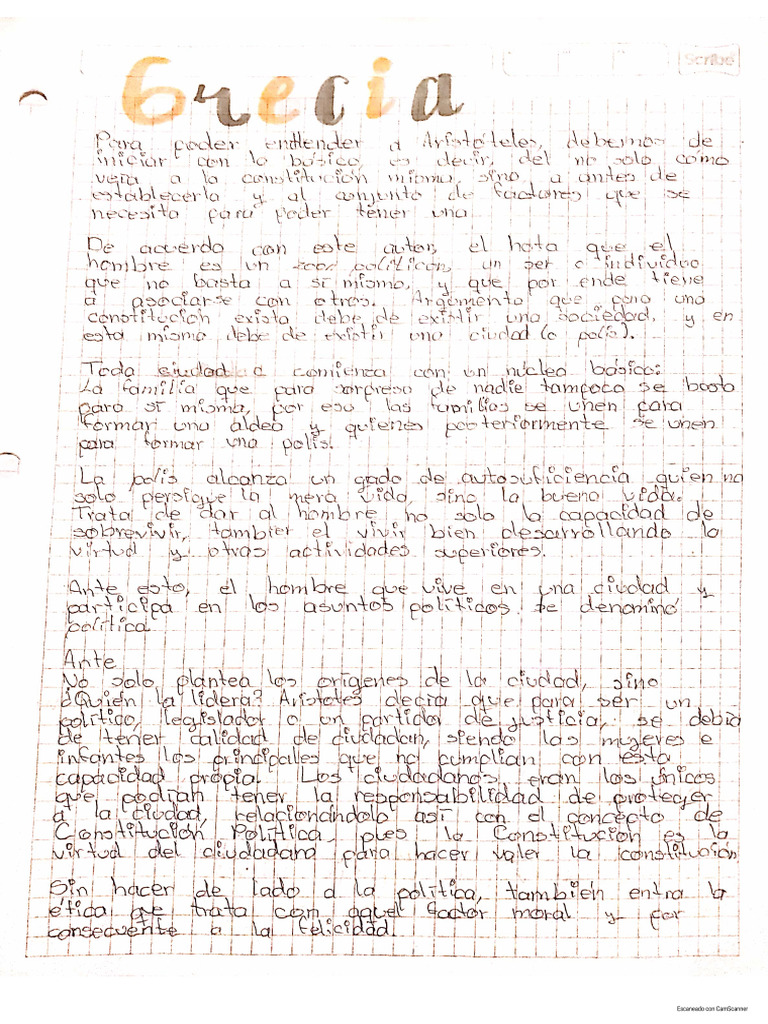 Scribe
Grecia
Para poder enttender a Aristóteles, debemos de
iniciar con lo básico, es decir, del no solo como
veía a la constitución misma, sino a antes de
establecerla y al conjunto de factores que se
necesita para poder tener una
De acuerdo con este autor, el hota que el
hombre es un zoon politicon, un ser o individuo
que no basta a sí mismo, y que por ende tiene
a asociarse con otros. Argumento que para una
constitución exista debe de existir una sociedad, y en
esta misma debe de existir una ciudad (o polis).
Toda ciudad comienza con un núcleo básico:
La familia que para sorpresa de nadie tampoco se basta
para si misma, por eso las familias se unen para
formar una aldea y quienes posteriormente se unen
para formar una polis.
La polis alcanza un gado de autosuficiencia quien no
solo persigue la mera vida, sino la buena vida.
Trata de dar al hombre no solo la capacidad de
sobrevivir, tambier el vivir bien desarrollando la
virtud y otras actividades superiores.
Ante esto, el hombre que vive en una ciudad y
participa en los asuntos políticos se denominó
política.
Ante
No solo plantea los orígenes de la ciudad, sino
¿Quién la lidera? Aristoteles decía que para ser un
político, legislador o un partidor de justicia, se debía
de tener calidad de ciudadan, siendo las mujeres e
infantes los principales que no cumplían con esta
capacidad propia. Los ciudadanos, eran los únicos
que podían tener la responsabilidad de proteger
a la ciudad, relacionándolo así con el concepto de
Constitución Política, pues la Constitución es la
virtud del ciudadano para hacer valer la constitución
Sin hacer de lado a la política, también entra la
ética que trata con aquel factor moral y por
consecuente a la felicidad.
Escaneado con CamScanner